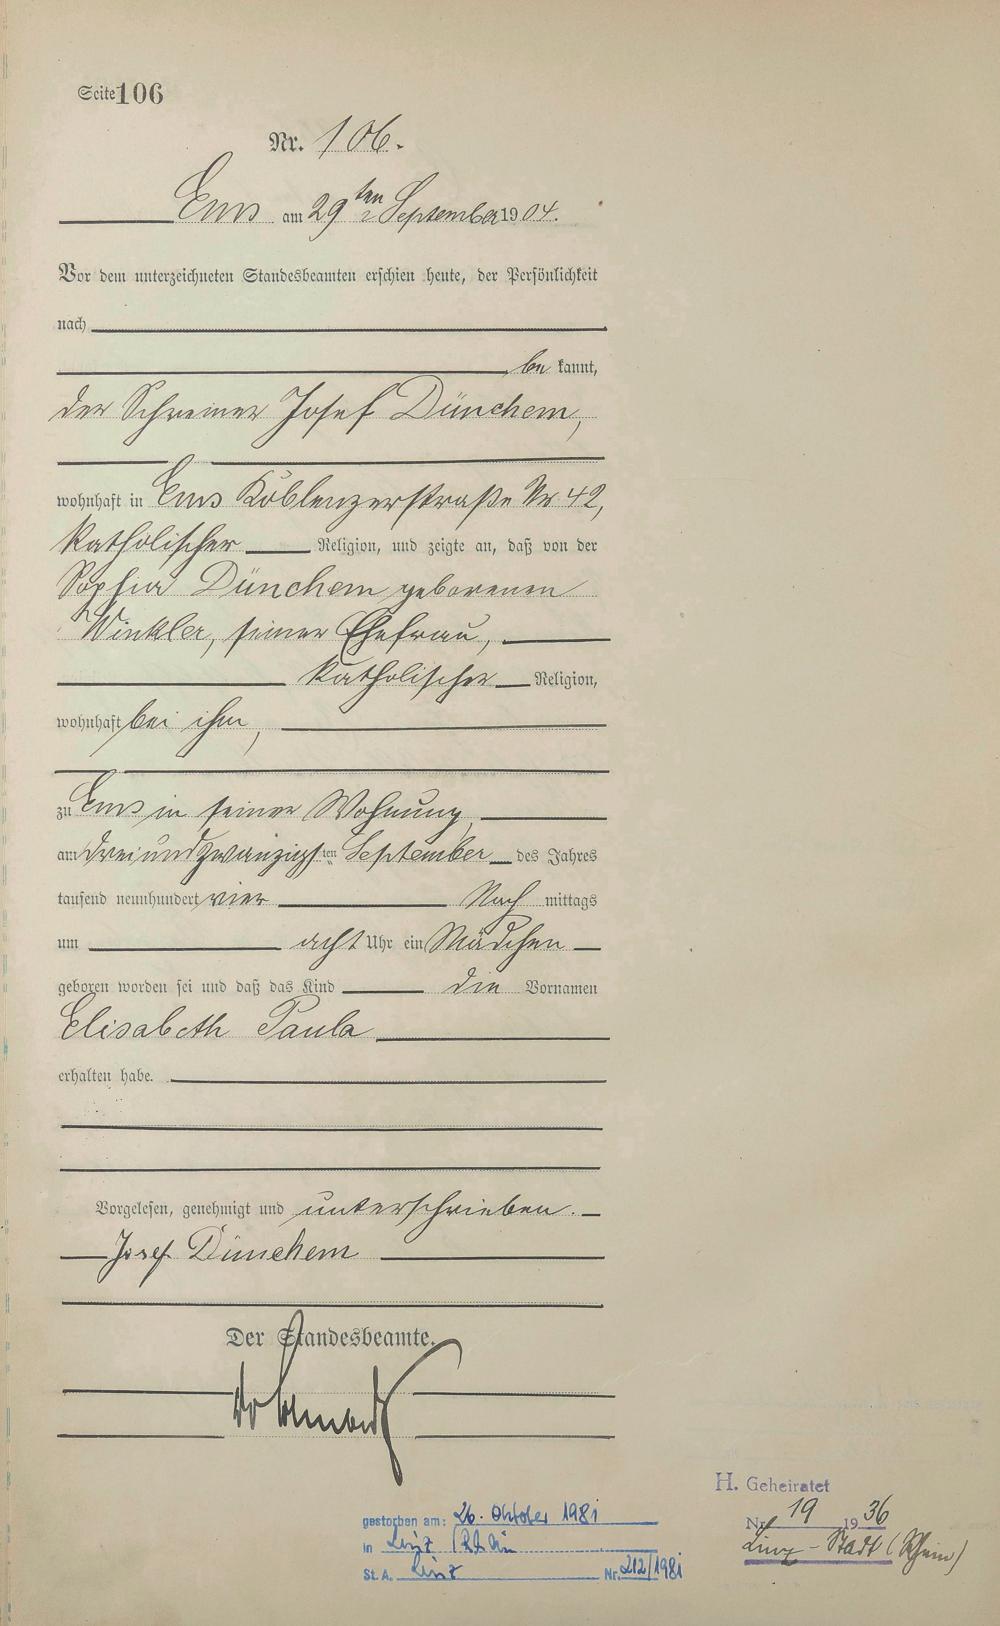 Seite 106
Nr. 106.
Ems am 29ten September 1904.
Vor dem unterzeichneten Standesbeamten erschien heute, der Persönlichkeit
nach
be kannt,
der Schreiner Josef Dünchem,
wohnhaft in Ems Koblenzerstraße Nr 42,
katholischer Religion, und zeigte an, daß von der
Sophia Dünchem geborenen
Winkler, seiner Ehefrau,
katholischer Religion,
wohnhaft bei ihm,
zu Ems in seiner Wohnung,
am dreiundzwanzigsten September des Jahres
tausend neunhundert vier Nach mittags
um acht Uhr ein Mädchen
geboren worden sei und daß das Kind die Vornamen
Elisabeth Paula
erhalten habe.
Vorgelesen, genehmigt und unterschrieben.
Josef Dünchem
Der Standesbeamte.
gestorben am: 26. Oktober 1981
in Linz /Rhein
St. A. Linz Nr. 212/1981
H. Geheiratet
Nr. 19 1936
Linz-Stadt (Rhein)